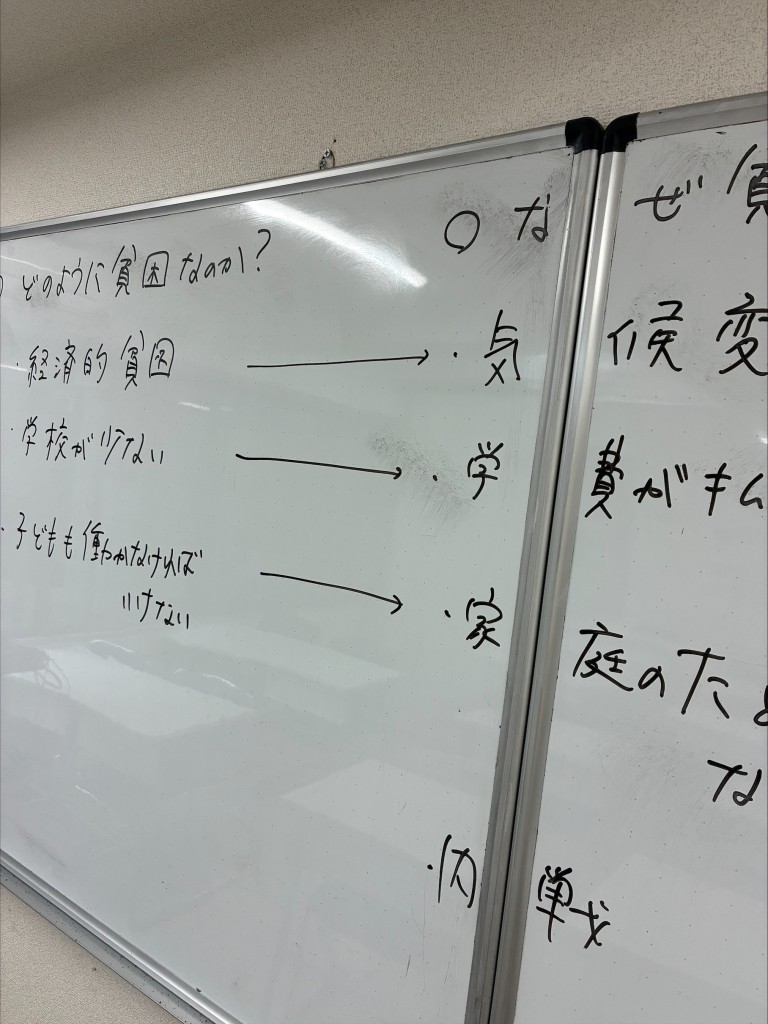 ○どのように貧困なのか?
・経済的貧困
・学校が少ない
・子どもも働かなければ
いけない
○なぜ貧
・気候変
・学費が払
・家庭のため
な
・内戦